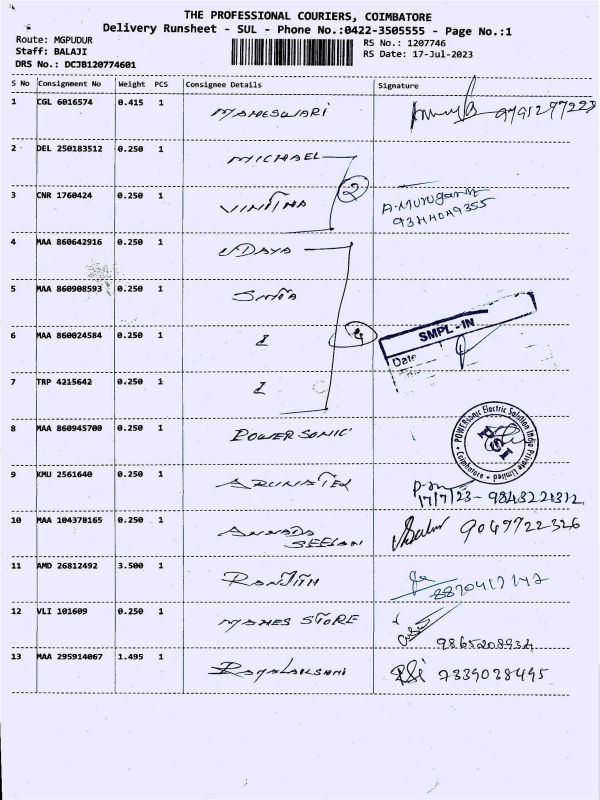 THE PROFESSIONAL COURIERS, COIMBATORE
Delivery Runsheet - SUL - Phone No.:0422-3505555 - Page No.:1
Route: MGPUDUR
RS No.: 1207746
Staff: BALAJI
RS Date: 17-Jul-2023
DRS No.: DCJB120774601
S No Consignment No Weight PCS Consignee Details Signature
1 CGL 6016574 0.415 1 MAHESWARI
2 DEL 250183512 0.250 1 MICHAEL
3 CNR 1760424 0.250 1 2 A.Murugan
9344049355
4 MAA 860642916 0.250 1 UDAYA
5 MAA 860908593 0.250 1
6 MAA 860024584 0.250 1 4 SMPL-IN
Date
7 TRP 4215642 0.250 1
8 MAA 860945700 0.250 1 POWER SONIC POWERsonic Electric Solution India Private Limited Coimbatore PSI
9 KMU 2561640 0.250 1 17/7/23 - 9843221312
10 MAA 104378165 0.250 1 9047722326
11 AMD 26812492 3.500 1 RANJITH
12 VLI 101609 0.250 1 MAHES STORE 9865208934
13 MAA 295914067 1.495 1 7339028495